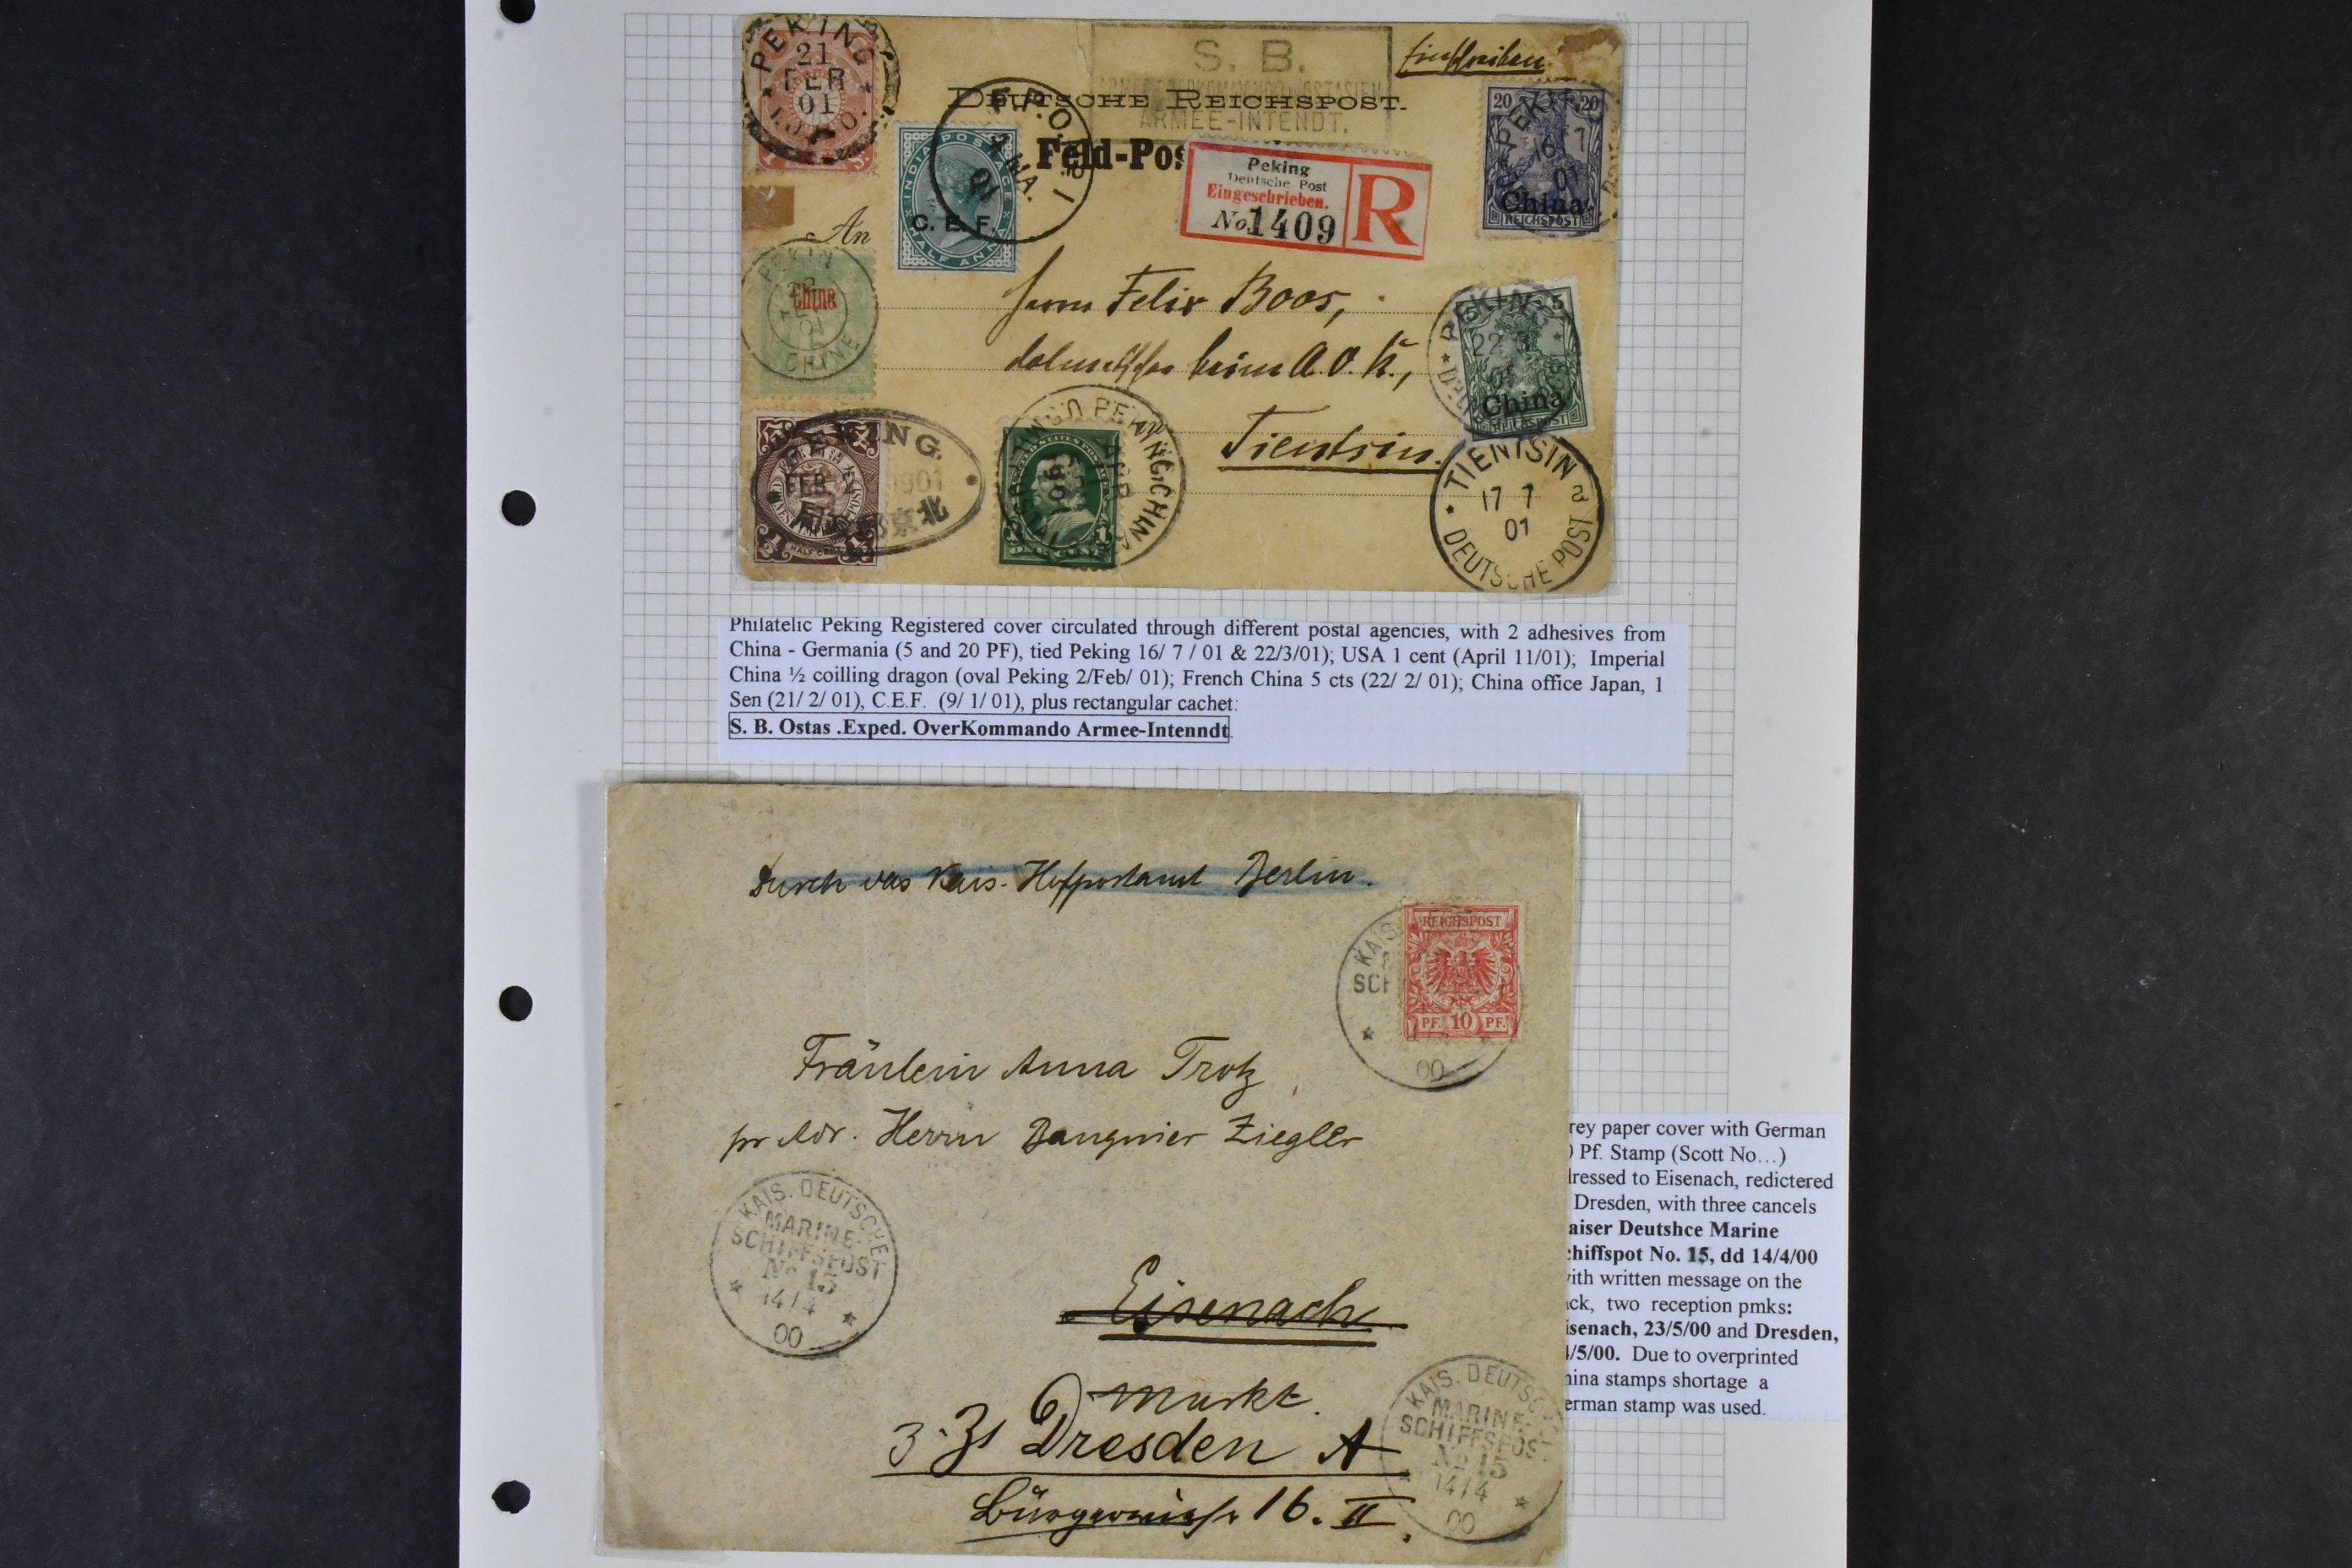 PEKING
21
FEB
01
I.J.P.O.
S. B.
ARMEE-INTENDT.
Einschreiben
DEUTSCHE REICHSPOST.
Feld-Pos
F.P.O.
INDIA POSTAGE
C. E. F.
HALF ANNA
Peking
Deutsche Post
Eingeschrieben.
No 1409
R
20 20
PEKING
16 7
01
China
REICHSPOST
An
PEKIN
China
01
CHINE
Herrn Felix Boos,
beim A. O. K.,
Tientsin.
5
PEKING
22 3
01
China
REICHSPOST
PEKING.
FEB
1901
北京
HALF CENT
PEKING, CHINA
APR
1901
TIENTSIN
17 7
01
a
DEUTSCHE POST
Philatelic Peking Registered cover circulated through different postal agencies, with 2 adhesives from
China - Germania (5 and 20 PF), tied Peking 16/ 7 / 01 & 22/3/01); USA 1 cent (April 11/01); Imperial
China ½ coilling dragon (oval Peking 2/Feb/ 01); French China 5 cts (22/ 2/ 01); China office Japan, 1
Sen (21/ 2/ 01), C.E.F. (9/ 1/ 01), plus rectangular cachet:
S. B. Ostas .Exped. OverKommando Armee-Intenndt.
Durch das Kais. Hofpostamt Berlin.
REICHSPOST
PF. 10 PF.
KAIS.
SCH
00
Fräulein Anna Trotz
pr Adr. Herrn Banquier Ziegler
KAIS. DEUTSCHE
MARINE-
SCHIFFSPOST
No 15
14/4
00
Eisenach
Markt.
z. Zt Dresden A
16. II.
KAIS. DEUTSCHE
MARINE-
SCHIFFSPOST
No 15
14/4
00
rey paper cover with German
) Pf. Stamp (Scott No…)
dressed to Eisenach, redictered
Dresden, with three cancels
aiser Deutshce Marine
chiffspot No. 15, dd 14/4/00
ith written message on the
ck, two reception pmks:
isenach, 23/5/00 and Dresden,
/5/00. Due to overprinted
hina stamps shortage a
erman stamp was used.